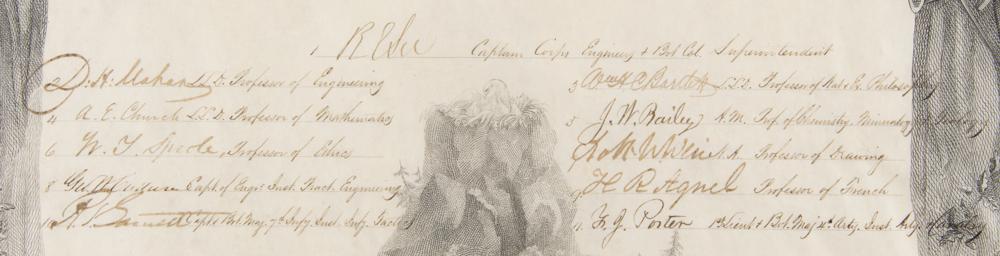 1 R E Lee Captain Corps Engineers & Bvt Col. Superintendent
2 D. H. Mahan LL.D. Professor of Engineering
3 Wm H C Bartlett L.L.D. Professor of Nat. & Ex. Philosophy
4 A. E. Church L.L.D. Professor of Mathematics
5 J. W. Bailey A.M. Prof. of Chemistry, Mineralogy & Geology
6 W. T. Sprole, Professor of Ethics
7 Robt W Weir N.A. Professor of Drawing
8 Geo. W. Cullum Capt. of Engrs. Inst. Pract. Engineering
9 H. R. Agnel Professor of French
10 Capt & Bvt. Maj. 7th Infy. Inst. Infy. Tactics
11 F. J. Porter 1st Lieut & Bvt. Maj 4th Arty. Inst. Arty. & Cavalry